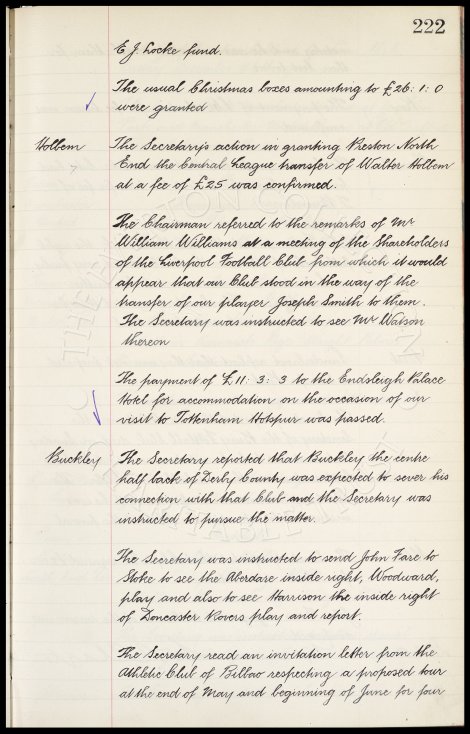 222
E.J. Locke fund.
The usual Christmas boxes amounting to £26: 1: 0
were granted
Holbem
The Secretary's action in granting Preston North
End the Central League transfer of Walter Holbem
at a fee of £25 was confirmed.
The Chairman referred to the remarks of Mr
William Williams at a meeting of the Shareholders
of the Liverpool Football Club from which it would
appear that our Club stood in the way of the
transfer of our player Joseph Smith to them.
The Secretary was instructed to see Mr Watson
thereon
The payment of £11: 3: 3 to the Endsleigh Palace
Hotel for accommodation on the occasion of our
visit to Tottenham Hotspur was passed.
Buckley
The Secretary reported that Buckley the centre
half back of Derby County was expected to sever his
connection with that Club and the Secretary was
instructed to pursue the matter.
The Secretary was instructed to send John Fare to
Stoke to see the Aberdare inside right, Woodward,
play and also to see Harrison the inside right
of Doncaster Rovers play and report.
The Secretary read an invitation letter from the
Athletic Club of Bilbao respecting a proposed tour
at the end of May and beginning of June for four